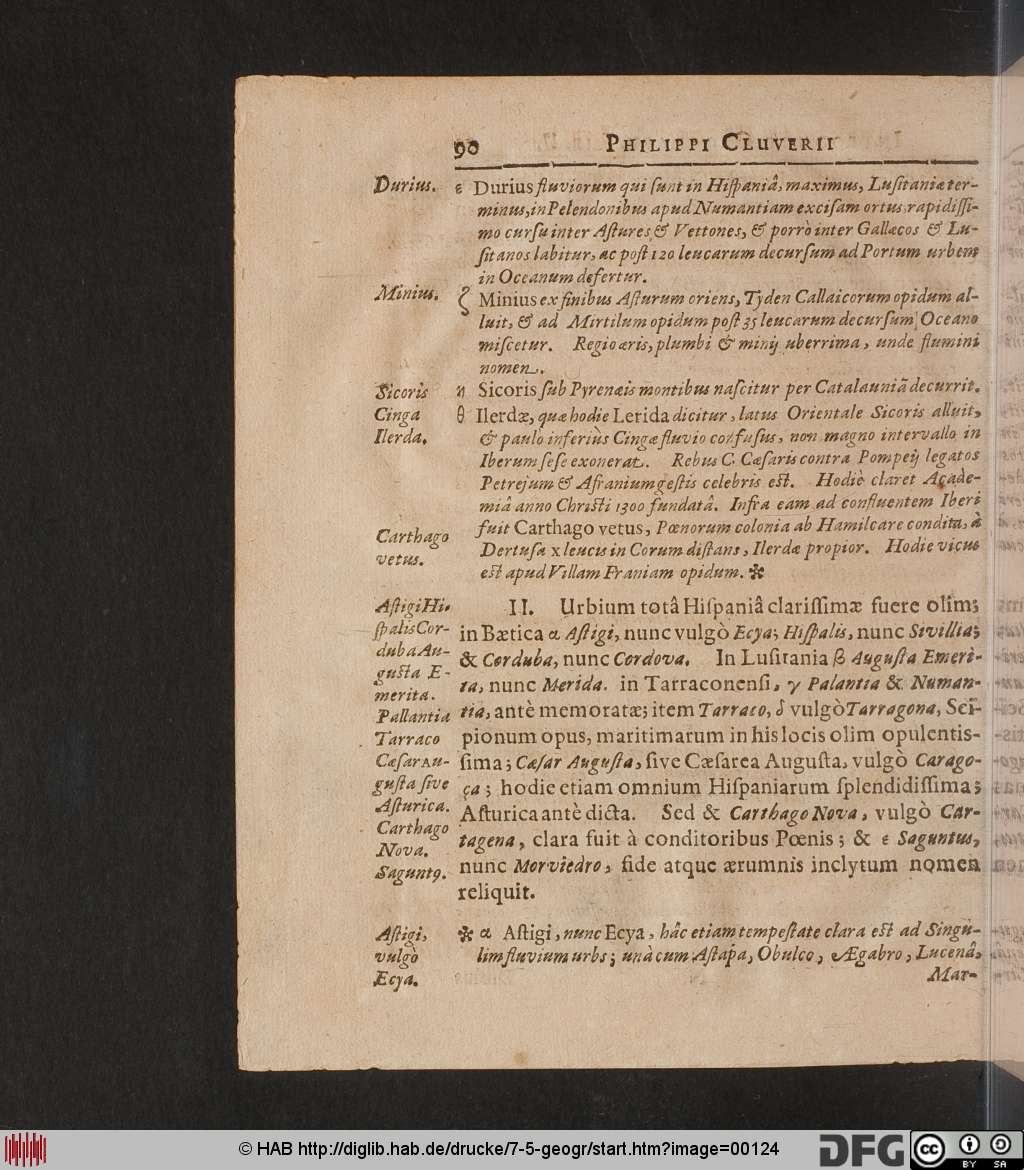 90 PHILIPPI CLUVERII
Durius. ε Durius fluviorum qui ſunt in Hiſpaniâ, maximus, Luſitaniæ ter-
minus, in Pelendonibus apud Numantiam exciſam ortus rapidiſſi-
mo curſu inter Aſtures & Vettones, & porrò inter Gallæcos & Lu-
ſitanos labitur, ac poſt 120 leucarum decurſum ad Portum urbem
in Oceanum defertur.
Minius. ζ Minius ex finibus Aſturum oriens, Tyden Callaicorum opidum al-
luit, & ad Mirtilum opidum poſt 35 leucarum decurſum Oceano
miſcetur. Regio æris, plumbi & minij uberrima, unde flumini
nomen.
Sicoris η Sicoris ſub Pyrenæis montibus naſcitur per Catalauniã decurrit.
Cinga θ Ilerdæ, quæ hodie Lerida dicitur, latus Orientale Sicoris alluit,
Ilerda. & paulo inferiùs Cingæ fluvio confuſus, non magno intervallo in
Iberum ſeſe exonerat. Rebus C. Cæſaris contra Pompeij legatos
Petrejum & Afranium geſtis celebris eſt. Hodiè claret Acade-
miâ anno Chriſti 1300 fundatâ. Infra eam ad confluentem Iberi
fuit Carthago vetus, Pœnorum colonia ab Hamilcare condita, à
Carthago Dertuſa x leucis in Corum diſtans, Ilerdæ propior. Hodie vicus
vetus. eſt apud Villam Franiam opidum. ✻
Aſtigi Hi- II. Urbium totâ Hiſpaniâ clariſſimæ fuere olim;
ſpalis Cor- in Bætica α Aſtigi, nunc vulgò Ecya; Hiſpalis, nunc Sivillia;
duba Au- & Corduba, nunc Cordova. In Luſitania β Auguſta Emeri-
guſta E- ta, nunc Merida. in Tarraconenſi, γ Palantia & Numan-
merita.
Pallantia tia, antè memoratæ; item Tarraco, δ vulgò Tarragona, Sci-
Tarraco pionum opus, maritimarum in his locis olim opulentis-
Cæſar Au- ſima; Cæſar Auguſta, ſive Cæſarea Auguſta, vulgò Carago-
guſta ſive ça; hodie etiam omnium Hiſpaniarum ſplendidiſſima;
Aſturica. Aſturica antè dicta. Sed & Carthago Nova, vulgò Car-
Carthago tagena, clara fuit à conditoribus Pœnis; & ε Saguntus,
Nova. nunc Morviedro, fide atque ærumnis inclytum nomen
Saguntꝰ. reliquit.
Aſtigi, ✻ α Aſtigi, nunc Ecya, hâc etiam tempeſtate clara eſt ad Singu-
vulgò lim fluvium urbs; unà cum Aſtapa, Obulco, Ægabro, Lucenâ,
Ecya. Mar-
© HAB http://diglib.hab.de/drucke/7-5-geogr/start.htm?image=00124
DFG
cc BY SA